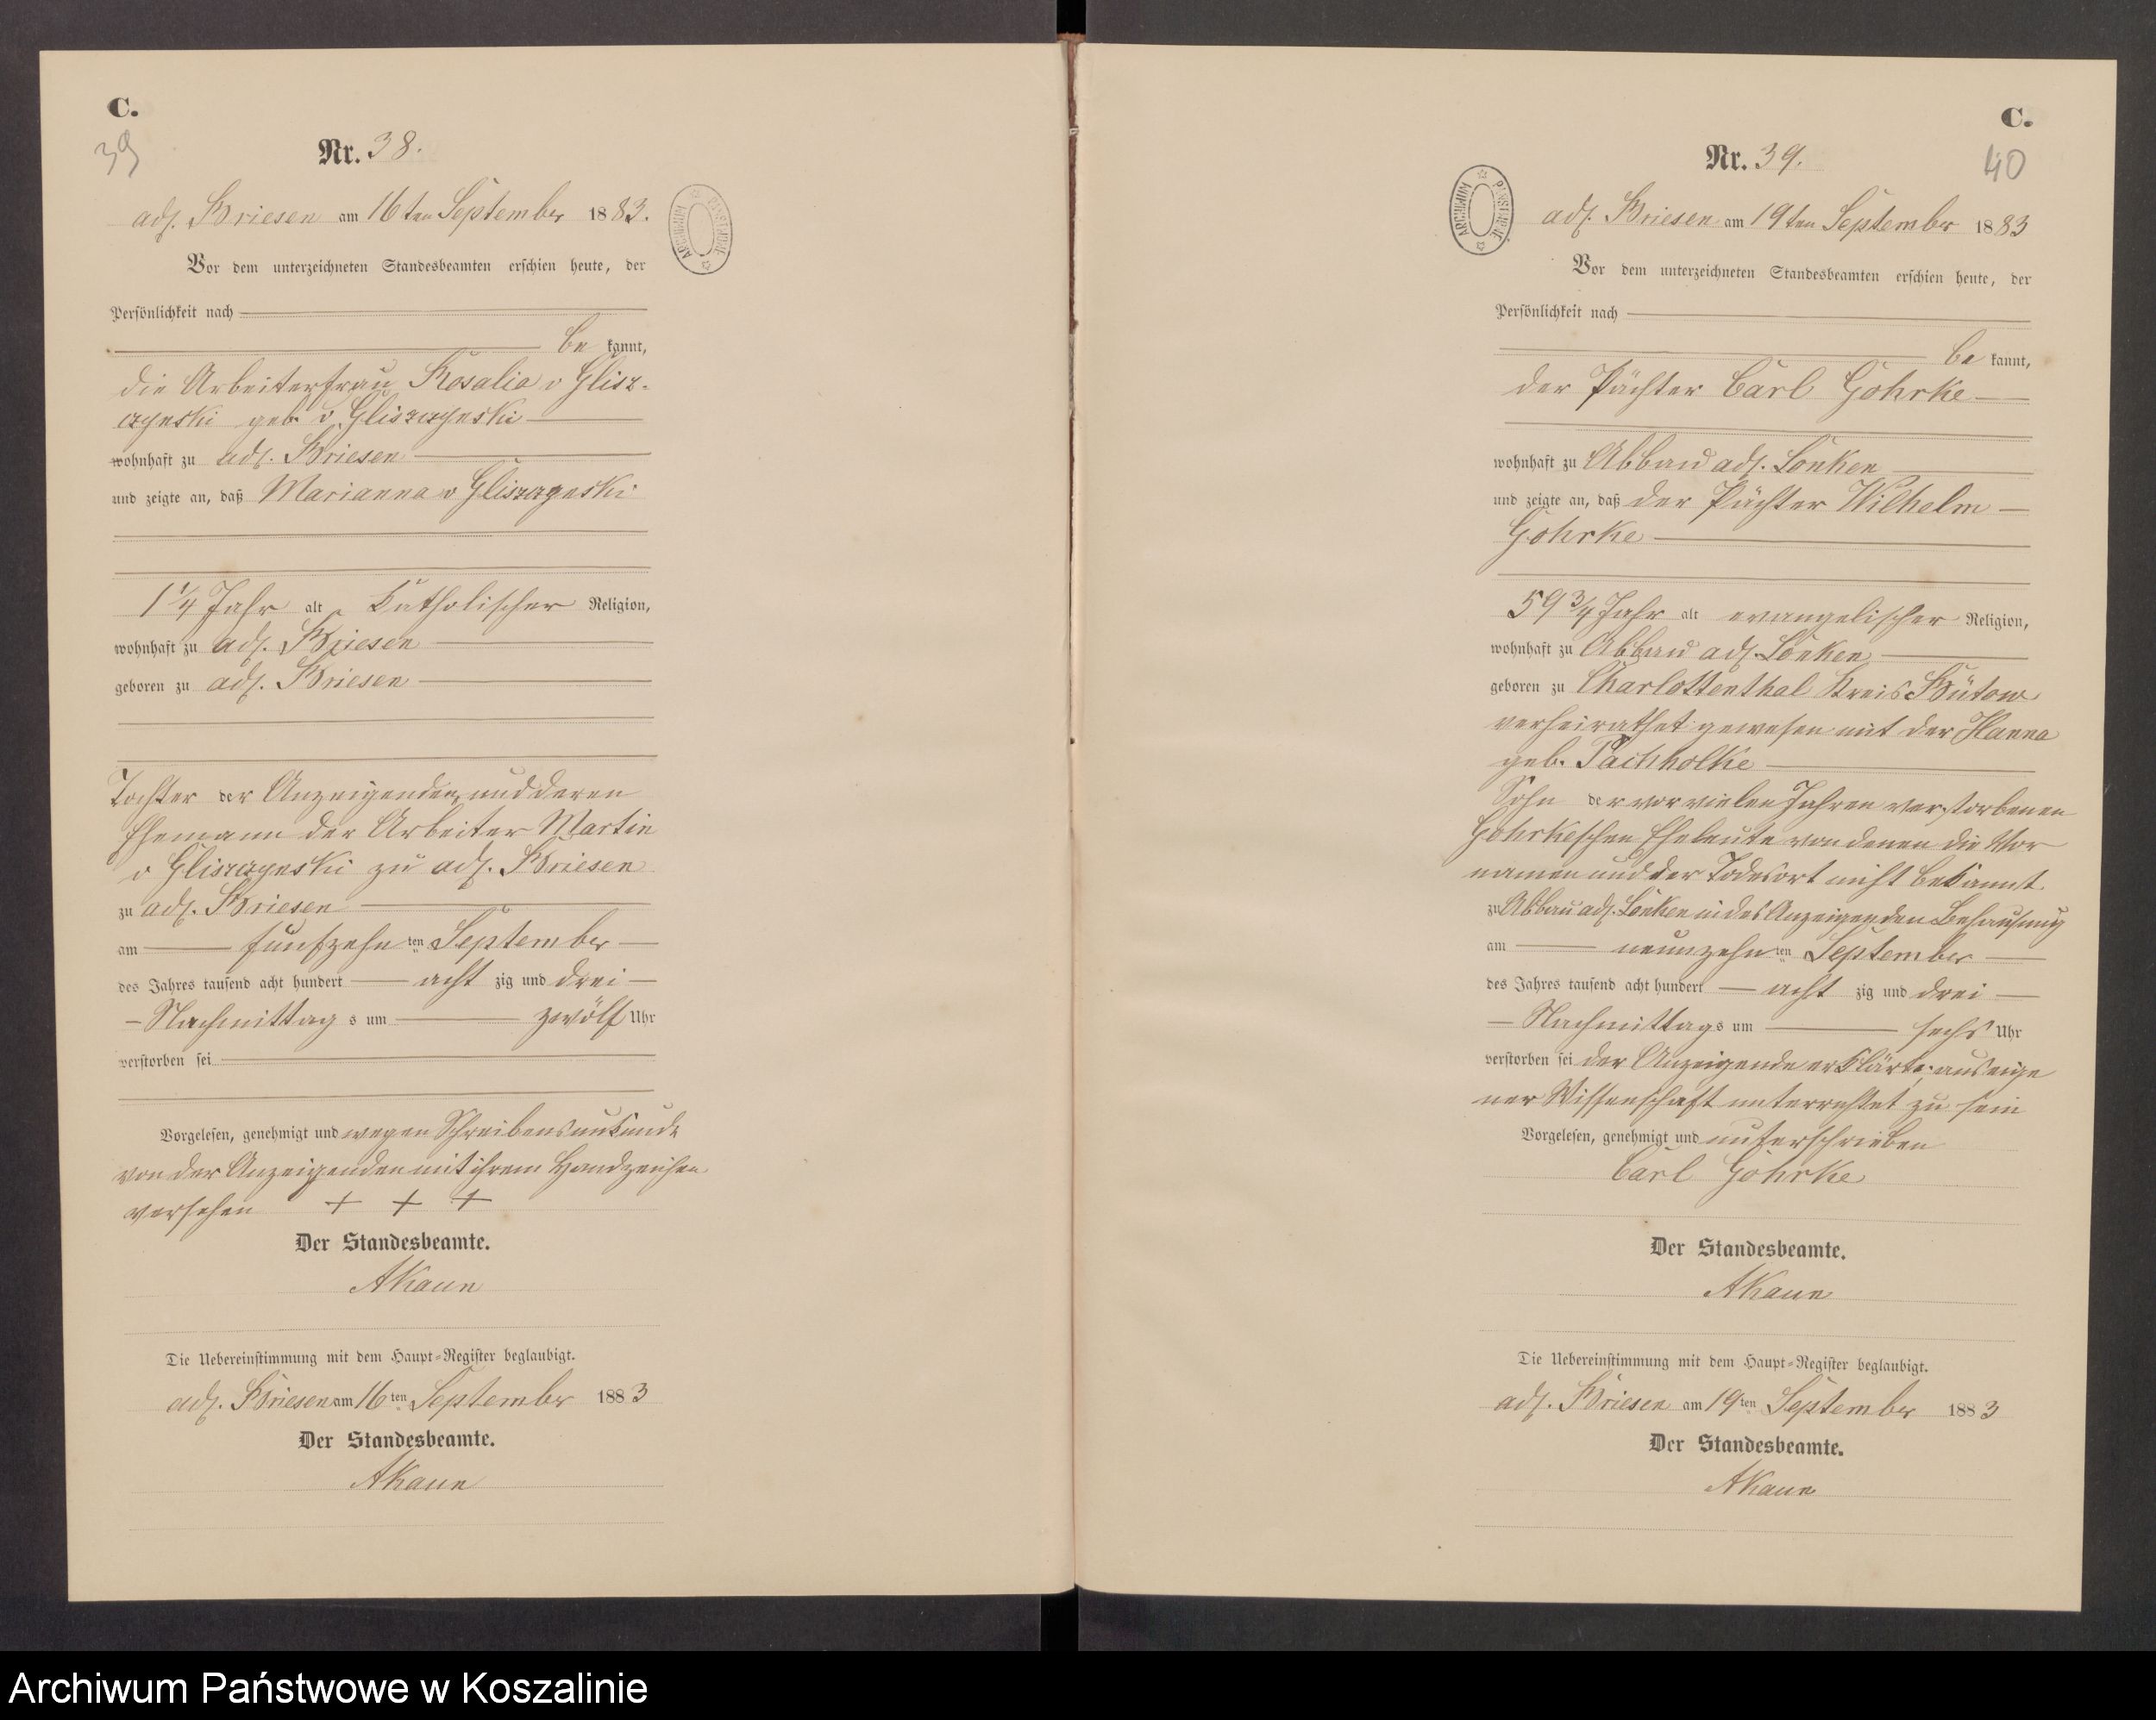 C.
39
Nr. 38.
adl. Briesen am 16ten September 1883.
Vor dem unterzeichneten Standesbeamten erschien heute, der
Persönlichkeit nach
be kannt,
die Arbeiterfrau Rosalia v Glisz-
czynski geb. v Gliszczynski
wohnhaft zu adl. Briesen
und zeigte an, daß Marianna v Gliszczynski
1 1/4 Jahr alt, katholischer Religion,
wohnhaft zu adl. Briesen
geboren zu adl. Briesen
Tochter der Anzeigenden und deren
Ehemann der Arbeiter Martin
v Gliszczynski zu adl. Briesen
zu adl. Briesen
am fünfzehn ten September
des Jahres tausend acht hundert acht zig und drei
Nachmittag s um zwölf Uhr
verstorben sei
Vorgelesen, genehmigt und wegen Schreibensunkunde
von der Anzeigenden mit ihrem Handzeichen
versehen + + +
Der Standesbeamte.
AKaun
Die Uebereinstimmung mit dem Haupt-Register beglaubigt.
adl. Briesen am 16ten September 1883
Der Standesbeamte.
AKaun
C.
40
Nr. 39.
ARCHIWUM PAŃSTWOWE
adl. Briesen am 19ten September 1883
Vor dem unterzeichneten Standesbeamten erschien heute, der
Persönlichkeit nach
be kannt,
der Pächter Carl Gohrke
wohnhaft zu Abbau adl. Lonken
und zeigte an, daß der Pächter Wilhelm
Gohrke
59 3/4 Jahr alt evangelischer Religion,
wohnhaft zu Abbau adl. Lonken
geboren zu Charlottenthal Kreis Bütow
verheirathet gewesen mit der Hanna
geb.
Sohn der vor vielen Jahren verstorbenen
Gohrkeschen Eheleute von denen die Vor
namen und der Todesort nicht bekannt.
zu Abbau adl. Lonken in des Anzeigenden Behausung
am neunzehn ten September
des Jahres tausend acht hundert acht zig und drei
Nachmittags um sechs Uhr
verstorben sei der Anzeigende erklärte, aus eige
ner Wissenschaft unterrichtet zu sein
Vorgelesen, genehmigt und unterschrieben
Carl Gohrke
Der Standesbeamte.
AKaun
Die Uebereinstimmung mit dem Haupt-Register beglaubigt.
adl. Briesen am 19ten September 1883
Der Standesbeamte.
AKaun
Archiwum Państwowe w Koszalinie